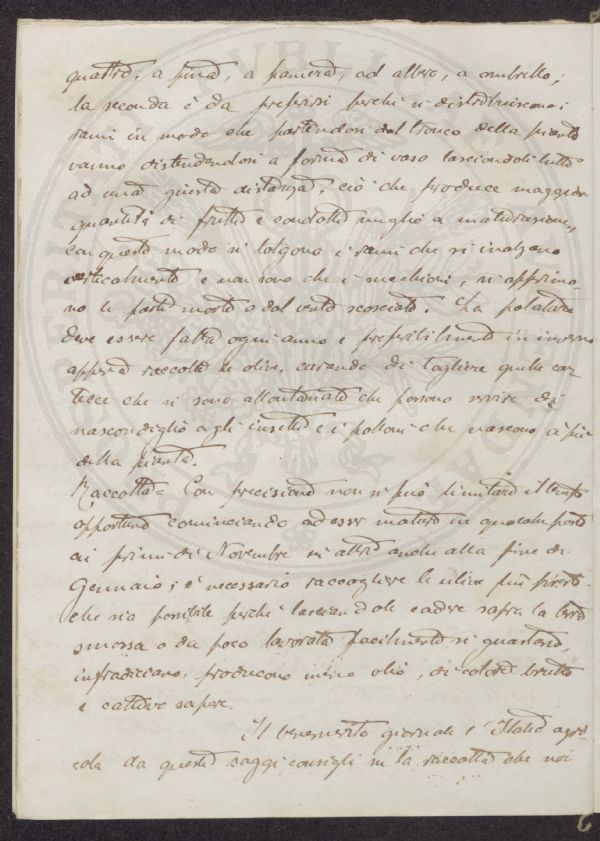 quattro, a pina, a paniera, ad albero, a ombrello;
la seconda è da preferirsi perchè si distribuiscono i
rami in modo che partendosi dal tronco della pianta
vanno distendendosi a forma di vaso lasciandoli tutti
ad una giusta distanza, ciò che produce maggior
quantità di frutto e condotto meglio a maturazione,
con questo modo si tolgono i rami che si inalzano
verticalmente e non sono che i succhioni, si opprimo-
no le parti morte o dal vento scosciate. La potatura
deve essere fatta ogni anno e preferibilmente in inverno
appena raccolte le olive, curando di togliere quelle cor-
tecce che si sono allontanate che possono servire di
nascondiglio agli insetti e i polloni che nascono a piè
della pianta.
Raccolta = Con precisione non si può limitare il tempo
opportuno cominciando ad esser mature in qualche posto
ai primi di Novembre in altro anche alla fine di
Gennaio; è necessario raccogliere le ulive più presto
che sia possibile perchè lasciandole cadere sopra la terra
smossa o da poco lavorata facilmente si guastano,
infradiciano, producono meno olio, di colore brutto
e cattivo sapore.
Il benemerito giornale l'Italia agri-
cola da questi saggi consigli su la raccolta che noi